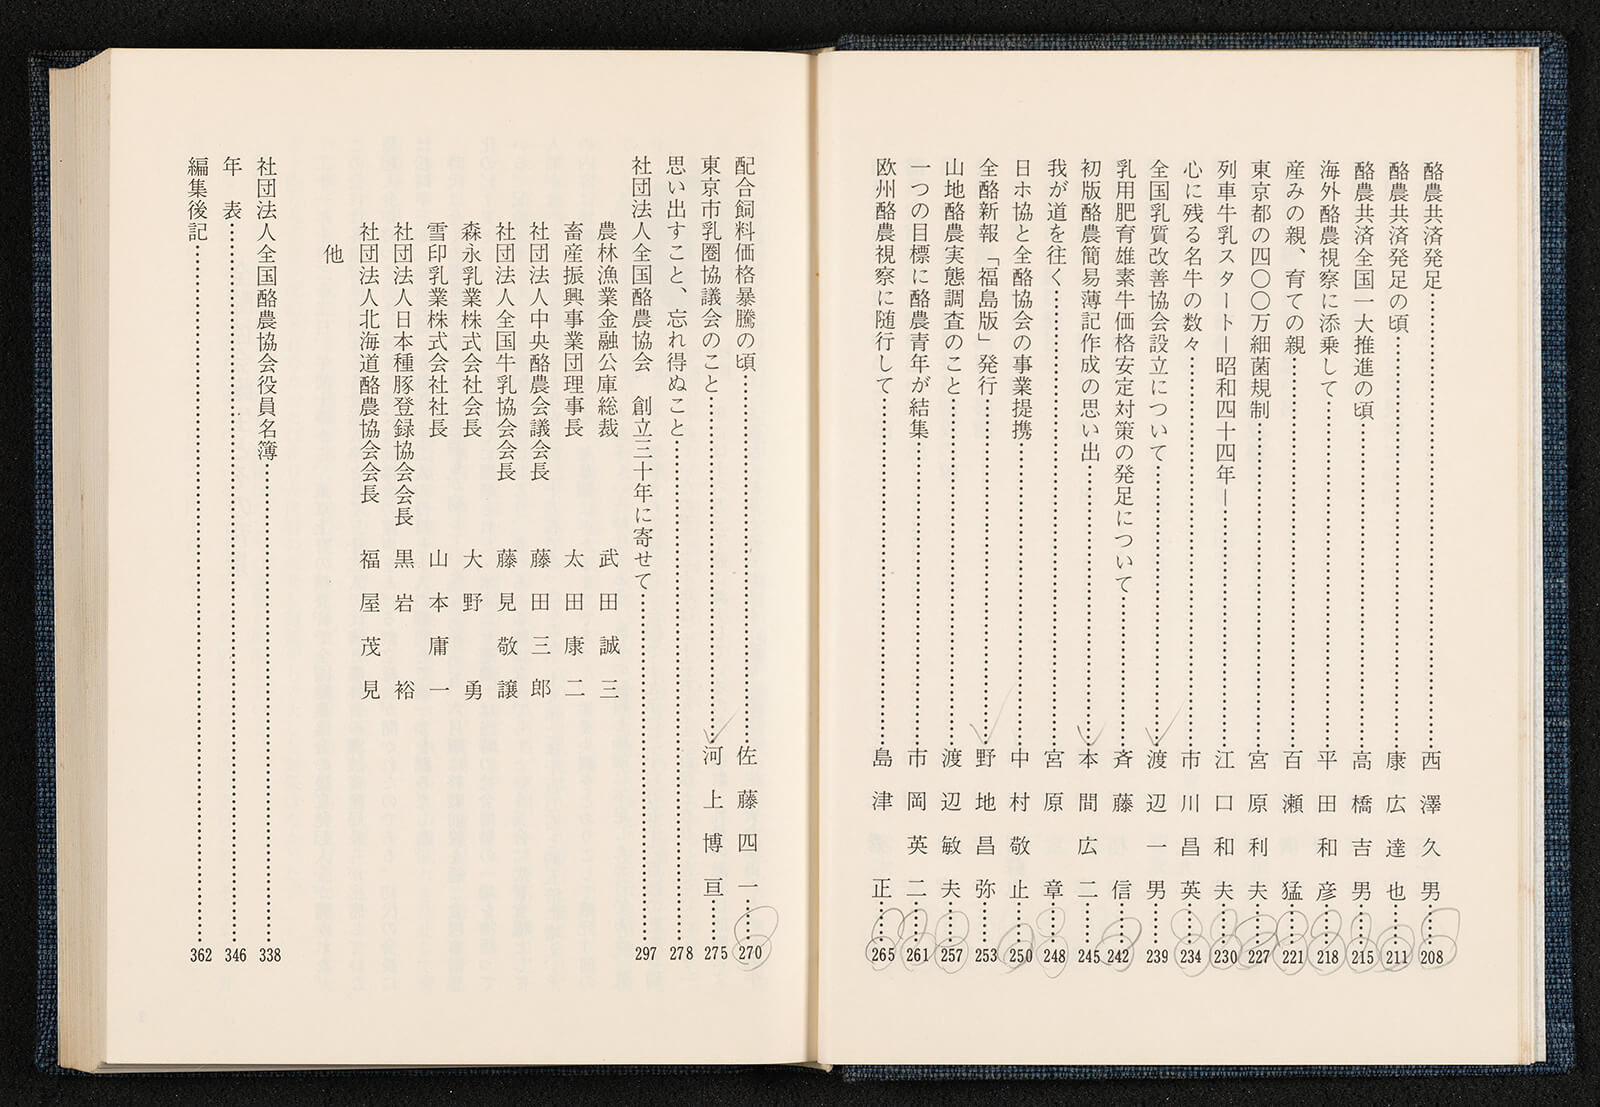 酪農共済発足……西澤久男……208
酪農共済発足の頃……康広達也……211
酪農共済全国一大推進の頃……高橋吉男……215
海外酪農視察に添乗して……平田和彦……218
産みの親、育ての親……百瀬猛……221
東京都の四〇〇万細菌規制……宮原利夫……227
列車牛乳スタート―昭和四十四年―……江口和夫……230
心に残る名牛の数々……市川昌英……234
全国乳質改善協会設立について……渡辺一男……239
乳用肥育雄素牛価格安定対策の発足について……斉藤信……242
初版酪農簡易薄記作成の思い出……本間広二……245
我が道を往く……宮原章……248
日ホ協と全酪協会の事業提携……中村敬止……250
全酪新報「福島版」発行……野地昌弥……253
山地酪農実態調査のこと……渡辺敏夫……257
一つの目標に酪農青年が結集……市岡英二……261
欧州酪農視察に随行して……島津正……265
配合飼料価格暴騰の頃……佐藤四一……270
東京市乳圏協議会のこと……河上博亘……275
思い出すこと、忘れ得ぬこと……278
社団法人全国酪農協会 創立三十年に寄せて……297
農林漁業金融公庫総裁 武田誠三
畜産振興事業団理事長 太田康二
社団法人中央酪農会議会長 藤田三郎
社団法人全国牛乳協会会長 藤見敬譲
森永乳業株式会社会長 大野勇
雪印乳業株式会社社長 山本庸一
社団法人日本種豚登録協会会長 黒岩裕
社団法人北海道酪農協会会長 福屋茂見
他
社団法人全国酪農協会役員名簿……338
年表……346
編集後記……362